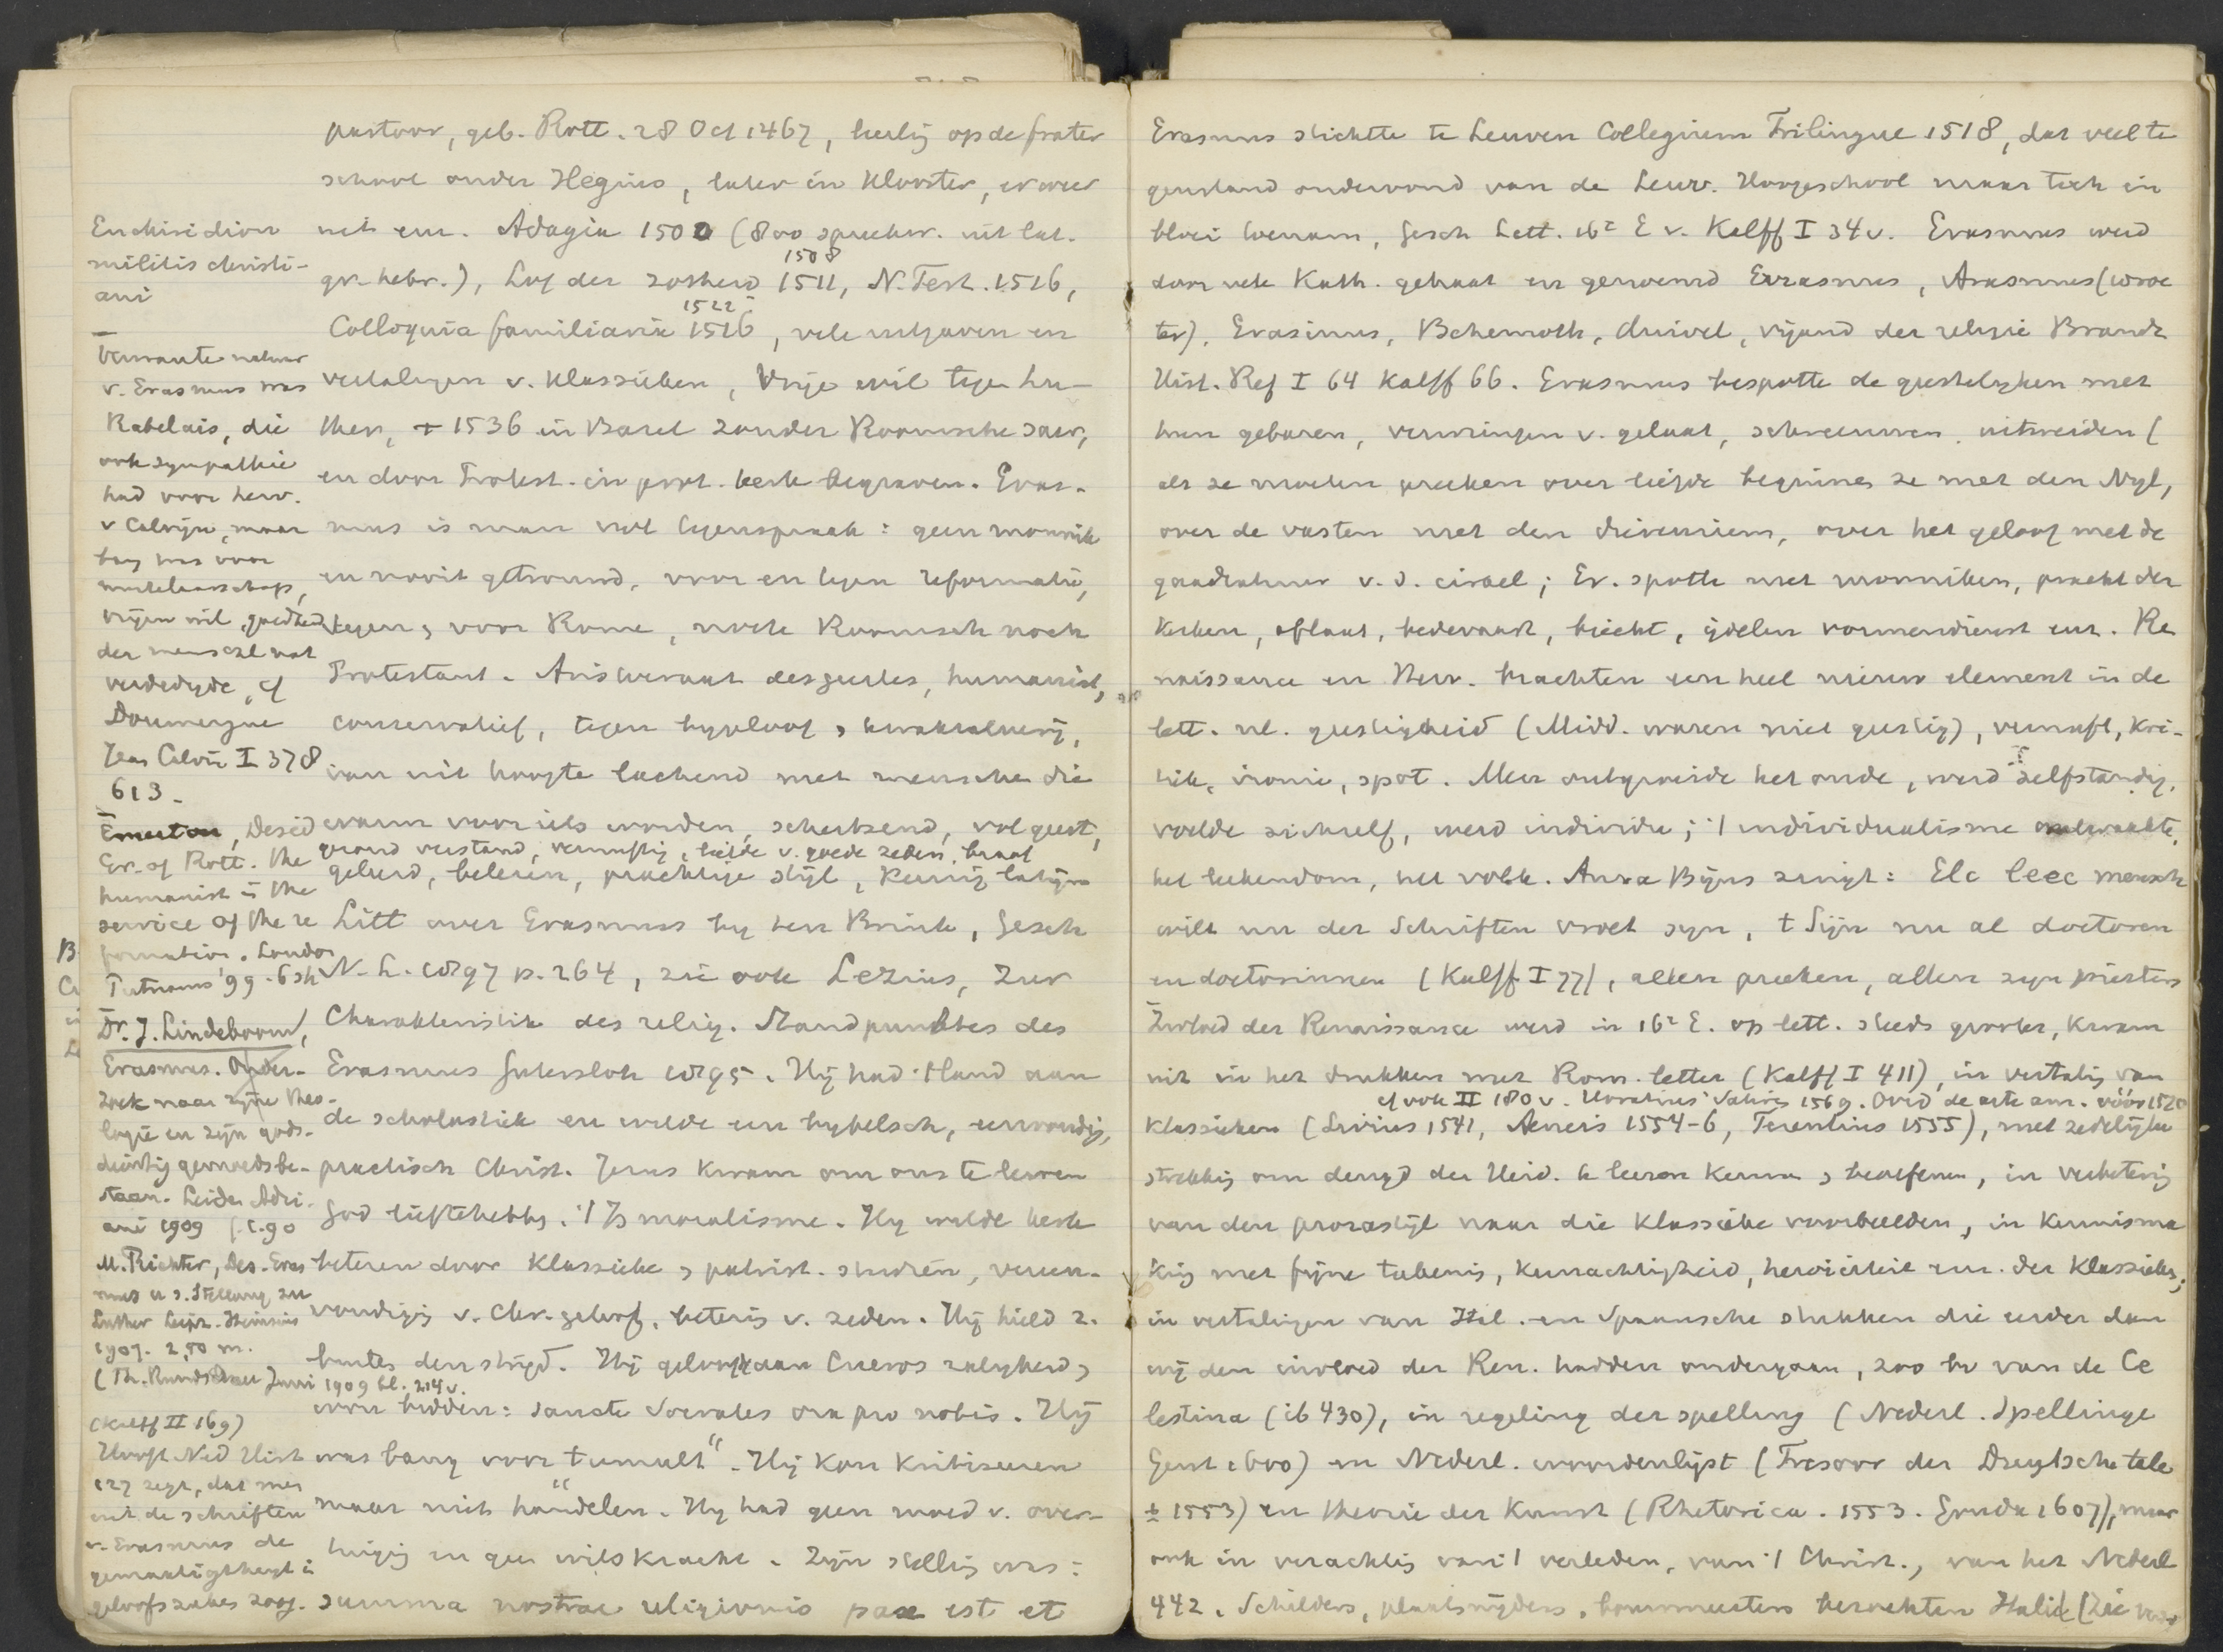 pastoor, geb. Rott. 28 Oct 1467, leerling op de frater
school onder Hegius, later in Klooster, er weer
uit enz. Adagia 1500 (800 spreekw. uit lat.
gr. hebr.), Lof der zotheid 1511, N. Test. 1516,
1508
Colloquia familiaria 1516, vele uitgaven en
1522
vertalingen v. Klassieken, Vrije wil tegen Lu-
ther, + 1536 in Basel zonder Roomsche sacr,
en door Protest. in prot. kerk begraven. Eras-
mus is man vol tegenspraak: geen monnik
en nooit getrouwd, voor en tegen reformatie,
tegen & voor Rome, noch Roomsch noch
Protestant. Aristocraat des geestes, humanist,
conservatief, tegen bygeloof & kwakzalverij,
van uit hoogte lachend met menschen die
warm voor iets worden, schertsend, vol geest,
gezond verstand, vernuftig, liefde v. goede zeden, braaf
geleerd, belezen, prachtige stijl, keurig latijn
Litt over Erasmus by ten Brink, Gesch
N. L. 1897 p. 264, zie ook Lezius, Zur
Charakteristik des relig. Standpunktes des
Erasmus Gütersloh 1895. Hij had 't land aan
de scholastiek en wilde een bybelsch, eenvoudig,
practisch Christ. Jezus kwam om ons te leeren
God liefhebben. 't Is moralisme. Hy wilde kerk
beteren door klassieke & patrist. studiën, vereen-
voudiging v. Chr. geloof, betering v. zeden. Hij hield z.
buiten den strijd. Hij geloofde aan Ciceros zaligheid &
wou bidden: sancte Socrates ora pro nobis. Hij
was bang voor "tumult". Hij kon kritiseeren
maar niet handelen. Hy had geen moed v. over-
tuiging en geen wilskracht. Zijn stelling was:
summa nostrae religionis pax est et
Enchiridion
militis christi-
ani
Verwante natuur
v. Erasmus was
Rabelais, die
ook sympathie
had voor herv.
v Calvijn, maar
bang was voor
martelaarschap,
vrijen wil, goedheid
der menschl nat
verdedigde, cf
Doumergue
Jean Calvin I 378
613.
Emerton, Desid
Er. of Rott. the
humanist in the
service of the re
formation. London
Putnams '99. 6 sh
Dr. J. Lindeboom,
Erasmus. Onder-
zoek naar zijne theo-
logie en zijn gods-
dienstig gemoedsbe-
staan. Leiden Adri-
ani 1909 f. 1.90
M. Richter, Des. Eras
mus u s. Stellung zu
Luther Leipz. Heinsius
1907. 2,50 m.
(Th. Rundschau Juni 1909 bl. 214 v.
(Kalff II 169)
Hooft Ned Hist
127 zegt, dat men
uit de schriften
v. Erasmus de
gematigtheyt in
geloofszakes zoog.
Erasmus stichtte te Leuven Collegium Trilingue 1518, dat veel te
genstand ondervond van de Leuv. Hoogeschool maar toch in
bloei toenam, Gesch Lett. 16e E v. Kalff I 34 v. Erasmus werd
door vele Kath. gehaat en genoemd Errasmus, Arasmus (wroe
ter), Erasinus, Behemoth, duivel, vijand der religie Brandt
Hist. Ref I 64 Kalff 66. Erasmus bespotte de geestelyken met
hun gebaren, verwringen v. gelaat, schreeuwen, uitweiden (
als ze moeten preeken over liefde beginnen ze met den Nyl,
over de vasten met den dierenriem, over het geloof met de
quadratuur v. d. cirkel; Er. spotte met monniken, pracht der
Kerken, aflaat, bedevaart, biecht, ijdelen vormendienst enz. Re
naissance en Herv. brachten een heel nieuw element in de
lett. nl. geestigheid (Midd. waren niet geestig), vernuft, kri-
tiek, ironie, spot. Men ontgroeide het oude, werd zelfstandig,
voelde zichzelf, werd individu; 't individualisme ontwaakte,
het leekendom, het volk. Anna Bijns zingt: Elc leec mensch
wilt nu der Schriften vroet syn, t Sijn nu al doctoren
en doctorinnen (Kalff I 77), allen preeken, allen zyn priesters
Invloed der Renaissance werd in 16e E. op lett. steeds grooter, kwam
uit in het drukken met Rom. letter (Kalff I 411), in vertaling van
cf ook II 180 v. Horatius' Satires 1569. Ovid de arte am. vóór 1520
Klassieken (Livius 1541, Aeneis 1554-6, Terentius 1555), met zedelijke
strekking om deugd der Heid. te leeren kennen & beoefenen, in verbetering
van den prozastijl naar die klassieke voorbeelden, in kennisma
king met fijne tafereelen, kunstachtigheid, heroiciteit enz. der Klassieken;
in vertalingen van Ital. en Spaansche stukken die eerder dan
wij den invloed der Ren. hadden ondergaan, zoo bv van de Ce
lestina (ib 430), in regeling der spelling (Nederl. Spellinge
Gent 1600) en Nederl. woordenlijst (Tresoor der Duytsche tale
± 1553) en theorie der Kunst (Rhetorica. 1553. Gouda 1607), maar
ook in verachting van 't verleden, van 't Christ., van het Nederl
442. Schilders, plaatsnijders, bouwmeesters bezochten Italië (zie voor